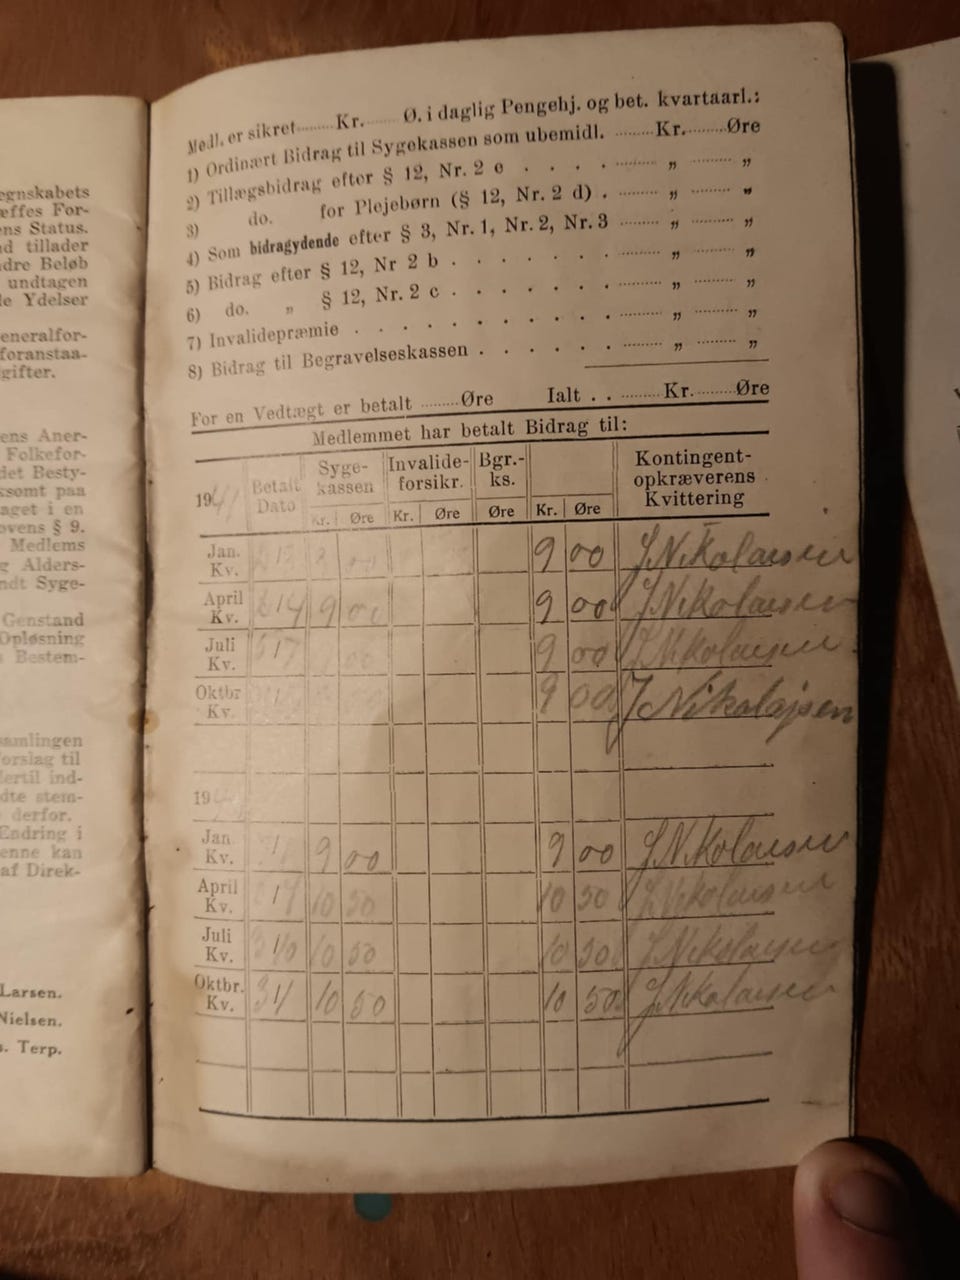 egnskabets
æffes For-
ens Status.
d tillader
dre Beløb
undtagen
le Ydelser
eneralfor-
foranstaa-
gifter.
ens Aner-
Folkefor-
det Besty-
ksomt paa
aget i en
ovens § 9.
Medlems
g Alders-
ndt Syge-
Genstand
Opløsning
s Bestem-
samlingen
orslag til
dertil ind-
dte stem-
derfor.
Endring i
enne kan
af Direk-
Larsen.
Nielsen.
s. Terp.
Medl. er sikret ........ Kr. ........ Ø. i daglig Pengehj. og bet. kvartaarl.:
1) Ordinært Bidrag til Sygekassen som ubemidl. ........ Kr. ........ Øre
2) Tillægsbidrag efter § 12, Nr. 2 e . . . . ........ „ ........ „
3) do. for Plejebørn (§ 12, Nr. 2 d) . ........ „ ........ „
4) Som bidragydende efter § 3, Nr. 1, Nr. 2, Nr. 3 ........ „ ........ „
5) Bidrag efter § 12, Nr 2 b . . . . . . . ........ „ ........ „
6) do. „ § 12, Nr. 2 c . . . . . . . ........ „ ........ „
7) Invalidepræmie . . . . . . . . . . ........ „ ........ „
8) Bidrag til Begravelseskassen . . . . . . ........ „ ........ „
For en Vedtægt er betalt ........ Øre Ialt . . ........ Kr. ........ Øre
Medlemmet har betalt Bidrag til:
1941 Betalt Dato Syge-kassen Invalide-forsikr. Bgr.-ks. Kontingent-opkræverens Kvittering
Kr. Øre Kr. Øre Øre Kr. Øre
Jan. Kv. 9 00 J Nikolaisen
April Kv. 14 9 00 9 00 J Nikolaisen
Juli Kv. 9 00 J Nikolaisen
Oktbr Kv. 9 00 J Nikolajsen
19
Jan. Kv. 9 00 9 00 J Nikolaisen
April Kv. 10 50 10 50 J Nikolaisen
Juli Kv. 10 50 10 50 J Nikolaisen
Oktbr. Kv. 10 50 10 50 J Nikolaisen